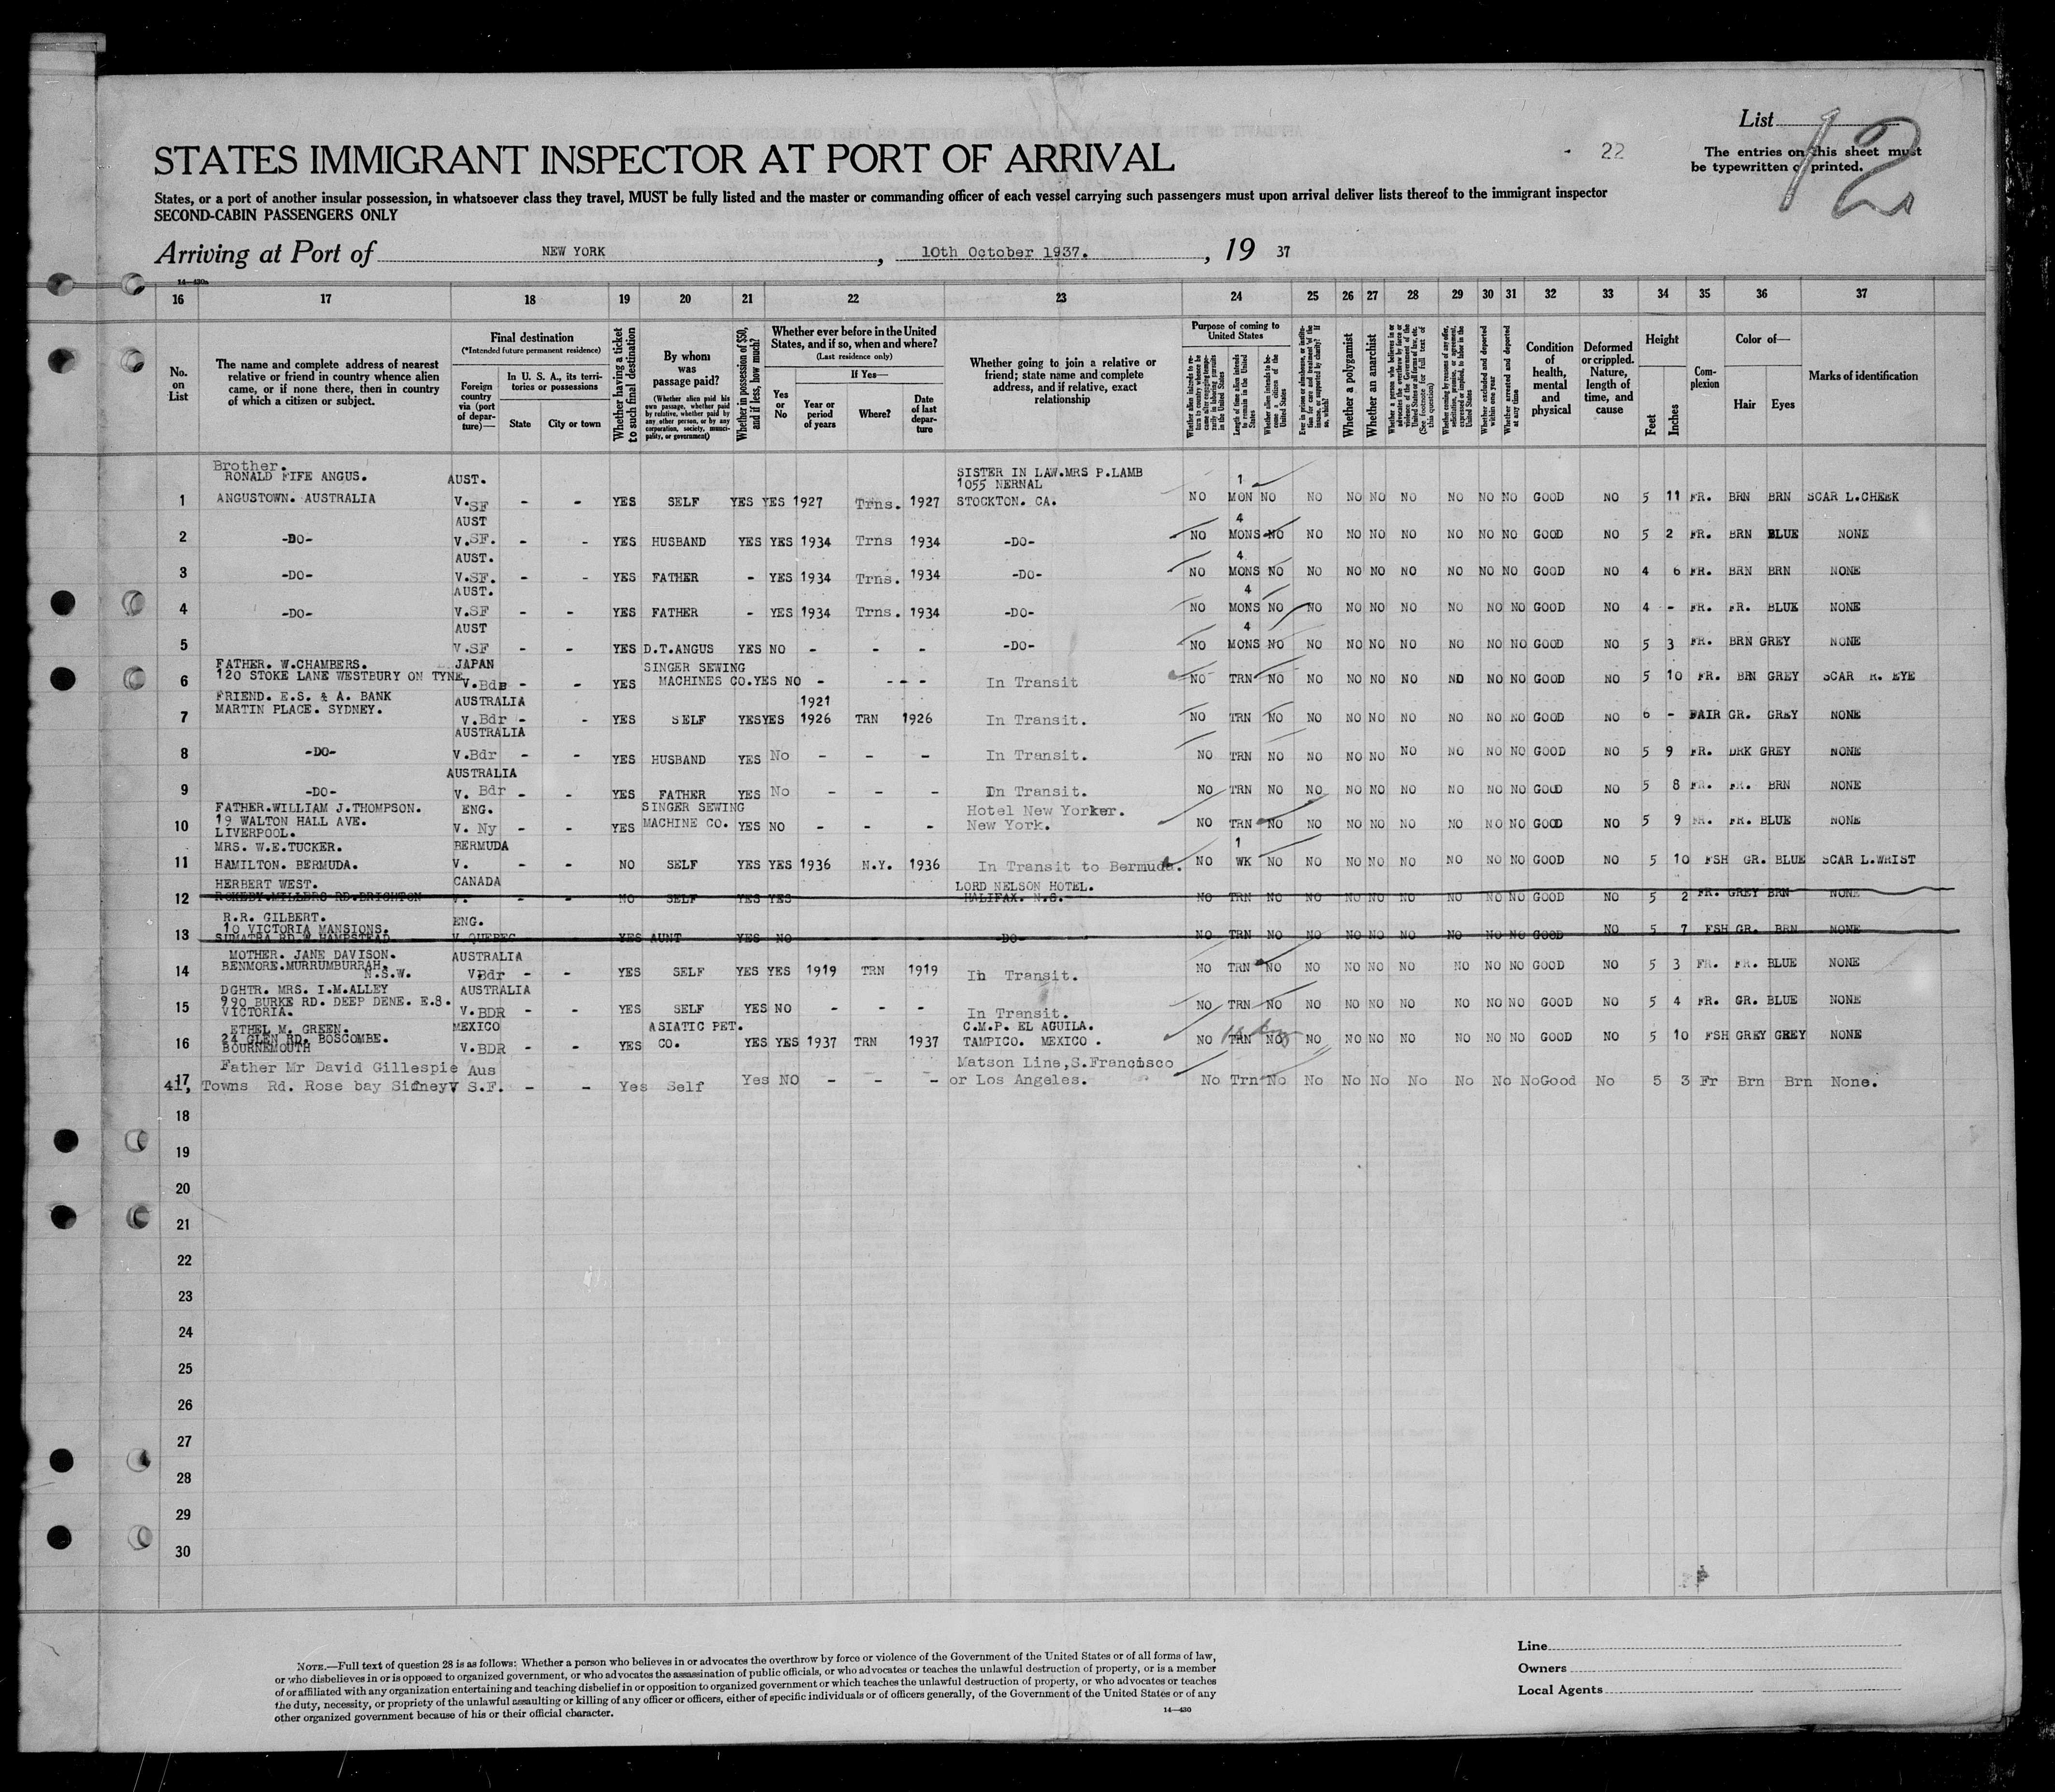 List
12
- 22
The entries on this sheet must
be typewritten or printed.
STATES IMMIGRANT INSPECTOR AT PORT OF ARRIVAL
States, or a port of another insular possession, in whatsoever class they travel, MUST be fully listed and the master or commanding officer of each vessel carrying such passengers must upon arrival deliver lists thereof to the immigrant inspector
SECOND-CABIN PASSENGERS ONLY
Arriving at Port of NEW YORK, 10th October 1937., 19 37
14—430a
16 17 18 19 20 21 22 23 24 25 26 27 28 29 30 31 32 33 34 35 36 37
No. on List
The name and complete address of nearest relative or friend in country whence alien came, or if none there, then in country of which a citizen or subject.
Final destination
(*Intended future permanent residence)
Foreign country via (port of departure)—
In U. S. A., its territories or possessions
State City or town
Whether having a ticket to such final destination
By whom was passage paid?
(Whether alien paid his own passage, whether paid by relative, whether paid by any other person, or by any corporation, society, municipality, or government)
Whether in possession of $50, and if less, how much?
Whether ever before in the United States, and if so, when and where?
(Last residence only)
Yes or No
If Yes—
Year or period of years
Where?
Date of last departure
Whether going to join a relative or friend; state name and complete address, and if relative, exact relationship
Purpose of coming to United States
Whether alien intends to return to country whence he came after engaging temporarily in laboring pursuits in the United States
Length of time alien intends to remain in the United States
Whether alien intends to become a citizen of the United States
Ever in prison or almshouse, or institution for care and treatment of the insane, or supported by charity? If so, which?
Whether a polygamist
Whether an anarchist
Whether a person who believes in or advocates the overthrow by force or violence of the Government of the United States or all forms of law, etc. (See footnote for full text of this question)
Whether coming by reason of any offer, solicitation, promise, or agreement, expressed or implied, to labor in the United States
Whether excluded and deported within one year
Whether arrested and deported at any time
Condition of health, mental and physical
Deformed or crippled. Nature, length of time, and cause
Height
Feet Inches
Complexion
Color of—
Hair Eyes
Marks of identification
Brother.
RONALD FIFE ANGUS. AUST. SISTER IN LAW.MRS P.LAMB
1055 NERNAL 1
1 ANGUSTOWN. AUSTRALIA V.SF - - YES SELF YES YES 1927 Trns. 1927 STOCKTON. CA. NO MON NO NO NO NO NO NO NO NO GOOD NO 5 11 FR. BRN BRN SCAR L.CHEEK
AUST 4
2 -DO- V.SF. - - YES HUSBAND YES YES 1934 Trns 1934 -DO- NO MONS NO NO NO NO NO NO NO NO GOOD NO 5 2 FR. BRN BLUE NONE
AUST. 4
3 -DO- V.SF. - - YES FATHER - YES 1934 Trns. 1934 -DO- NO MONS NO NO NO NO NO NO NO NO GOOD NO 4 6 FR. BRN BRN NONE
AUST. 4
4 -DO- V.SF - - YES FATHER - YES 1934 Trns. 1934 -DO- NO MONS NO NO NO NO NO NO NO NO GOOD NO 4 - FR. FR. BLUE NONE
AUST 4
5 V.SF - - YES D.T.ANGUS YES NO - - - -DO- NO MONS NO NO NO NO NO NO NO NO GOOD NO 5 3 FR. BRN GREY NONE
FATHER. W.CHAMBERS. JAPAN SINGER SEWING
6 120 STOKE LANE WESTBURY ON TYNE V.Bdr - - YES MACHINES CO. YES NO - - - - In Transit NO TRN NO NO NO NO NO NO NO NO GOOD NO 5 10 FR. BRN GREY SCAR R. EYE
FRIEND. E.S. & A. BANK AUSTRALIA 1921
7 MARTIN PLACE. SYDNEY. V.Bdr - - YES SELF YES YES 1926 TRN 1926 In Transit. NO TRN NO NO NO NO NO NO NO NO GOOD NO 6 - FAIR GR. GREY NONE
AUSTRALIA
8 -DO- V.Bdr - - YES HUSBAND YES No - - - In Transit. NO TRN NO NO NO NO NO NO NO NO GOOD NO 5 9 FR. DRK GREY NONE
AUSTRALIA
9 -DO- V. Bdr - - YES FATHER YES No - - - In Transit. NO TRN NO NO NO NO NO NO NO NO GOOD NO 5 8 FR. FR. BRN NONE
FATHER.WILLIAM J.THOMPSON. ENG. SINGER SEWING Hotel New Yorker.
10 19 WALTON HALL AVE. V. Ny - - YES MACHINE CO. YES NO - - - New York. NO TRN NO NO NO NO NO NO NO NO GOOD NO 5 9 FR. FR. BLUE NONE
LIVERPOOL.
MRS. W.E.TUCKER. BERMUDA 1
11 HAMILTON. BERMUDA. V. - - NO SELF YES YES 1936 N.Y. 1936 In Transit to Bermuda. NO WK NO NO NO NO NO NO NO NO GOOD NO 5 10 FSH GR. BLUE SCAR L.WRIST
HERBERT WEST. CANADA LORD NELSON HOTEL.
12 ROKEBY.MILLERS RD.BRIGHTON V. - - NO SELF YES YES HALIFAX. N.S. NO TRN NO NO NO NO NO NO NO NO GOOD NO 5 2 FR. GREY BRN NONE
R.R. GILBERT. ENG.
10 VICTORIA MANSIONS.
13 SUMATRA RD.W.HAMPSTEAD V.QUEBEC YES AUNT YES NO - - - -DO- NO TRN NO NO NO NO NO NO NO NO GOOD NO 5 7 FSH GR. BRN NONE
MOTHER. JANE DAVISON. AUSTRALIA
14 BENMORE.MURRUMBURRAH. N.S.W. V.Bdr - - YES SELF YES YES 1919 TRN 1919 In Transit. NO TRN NO NO NO NO NO NO NO NO GOOD NO 5 3 FR. FR. BLUE NONE
DGHTR. MRS. I.M.ALLEY AUSTRALIA
15 990 BURKE RD. DEEP DENE. E.8. V.BDR - - YES SELF YES NO - - - In Transit. NO TRN NO NO NO NO NO NO NO NO GOOD NO 5 4 FR. GR. BLUE NONE
VICTORIA.
ETHEL M. GREEN. MEXICO ASIATIC PET. C.M.P. EL AGUILA.
16 24 GLEN RD. BOSCOMBE. V.BDR - - YES CO. YES YES 1937 TRN 1937 TAMPICO. MEXICO . NO TRN NO NO NO NO NO NO NO NO GOOD NO 5 10 FSH GREY GREY NONE
BOURNEMOUTH
Father Mr David Gillespie Aus Matson Line,S.Francisco
17 41, Towns Rd. Rose bay Sidney V S.F. - - Yes Self Yes NO - - - or Los Angeles. No Trn No No No No No No No No Good No 5 3 Fr Brn Brn None.
18
19
20
21
22
23
24
25
26
27
28
29
30
NOTE.—Full text of question 28 is as follows: Whether a person who believes in or advocates the overthrow by force or violence of the Government of the United States or of all forms of law,
or who disbelieves in or is opposed to organized government, or who advocates the assassination of public officials, or who advocates or teaches the unlawful destruction of property, or is a member
of or affiliated with any organization entertaining and teaching disbelief in or opposition to organized government or which teaches the unlawful destruction of property, or who advocates or teaches
the duty, necessity, or propriety of the unlawful assaulting or killing of any officer or officers, either of specific individuals or of officers generally, of the Government of the United States or of any
other organized government because of his or their official character.
14—430
Line
Owners
Local Agents